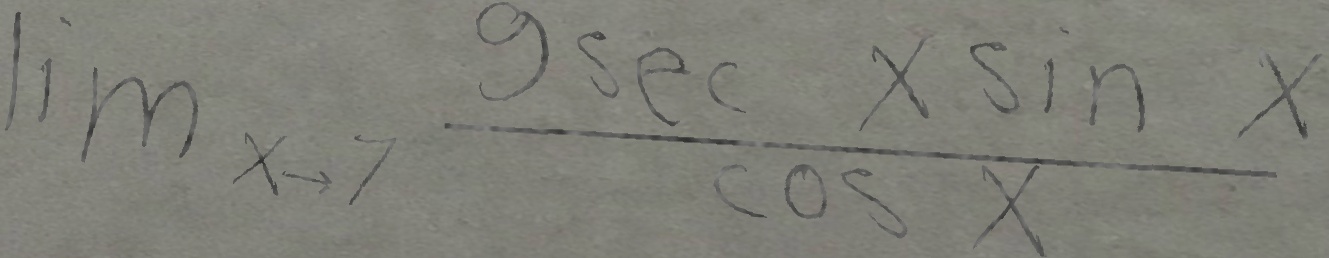 lim x→7 9 sec x sin x / cos x